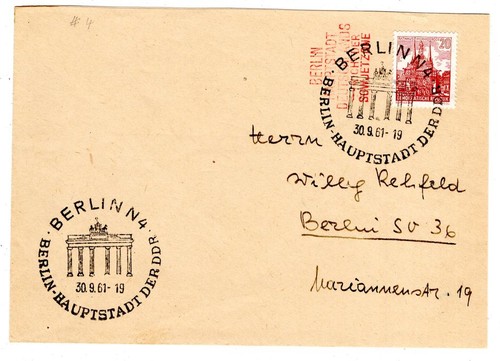 # 4
BERLIN
HAUPTSTADT
SOWJETZONE
20
BERLIN N4
BERLIN-HAUPTSTADT DER DDR
30.9.61-19
Herrn
Willy Rehfeld
Berlin SO 36
Mariannenstr. 19
· BERLIN N4 ·
BERLIN-HAUPTSTADT DER DDR
30.9.61-19